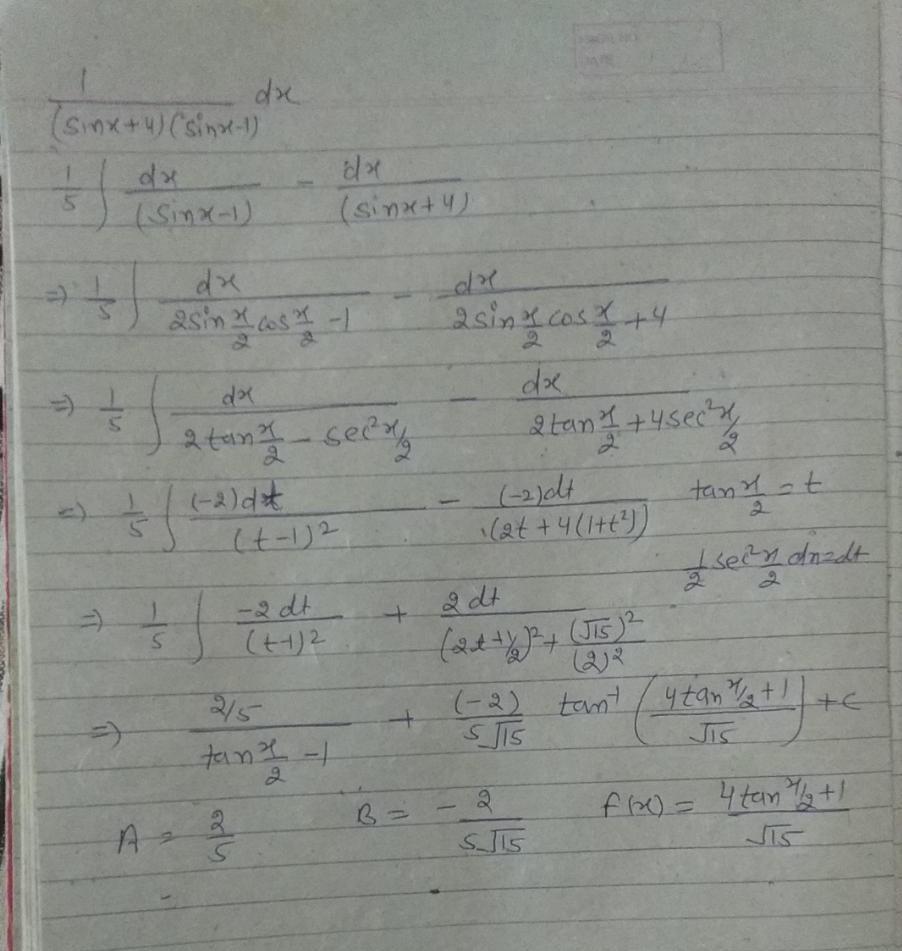 1/((sinx+4)(sinx-1)) dx
1/5 ∫ dx/(sinx-1) - dx/(sinx+4)
⇒ 1/5 ∫ dx/(2sin x/2 cos x/2 -1) - dx/(2sin x/2 cos x/2 +4)
⇒ 1/5 ∫ dx/(2tan x/2 - sec²x/2) - dx/(2tan x/2 + 4sec²x/2)
⇒ 1/5 ∫ (-2)dt/(t-1)² - (-2)dt/(2t+4(1+t²)) tan x/2 = t
1/2 sec² x/2 dx=dt
⇒ 1/5 ∫ -2dt/(t-1)² + 2dt/((2t+1/2)² + (√15)²/(2)²)
⇒ (2/5)/(tan x/2 -1) + (-2)/(5√15) tan⁻¹((4tan x/2+1)/√15) + c
A = 2/5 B = -2/(5√15) f(x) = (4tan x/2+1)/√15